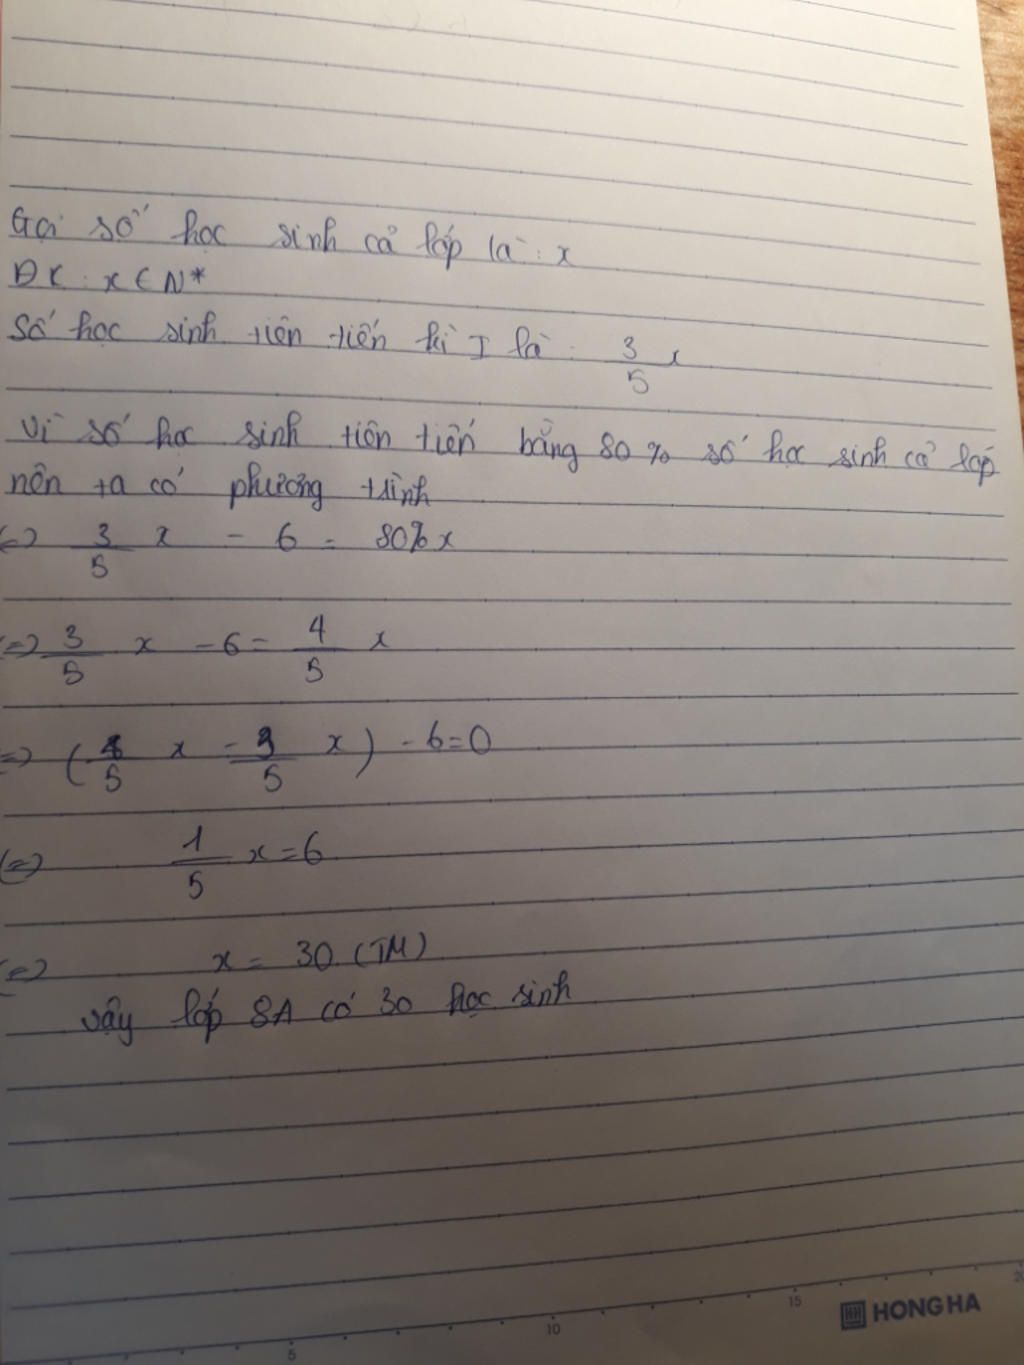 Gọi số học sinh cả lớp là : x
ĐK : x ∈ N*
Số học sinh tiên tiến kì I là : 3/5 x
Vì số học sinh tiên tiến bằng 80% số học sinh cả lớp
nên ta có phương trình
<=> 3/5 x - 6 = 80% x
<=> 3/5 x - 6 = 4/5 x
<=> (4/5 x - 3/5 x) - 6 = 0
<=> 1/5 x = 6
<=> x = 30 (TM)
vậy lớp 8A có 30 học sinh
5 10 15 20
HONG HA